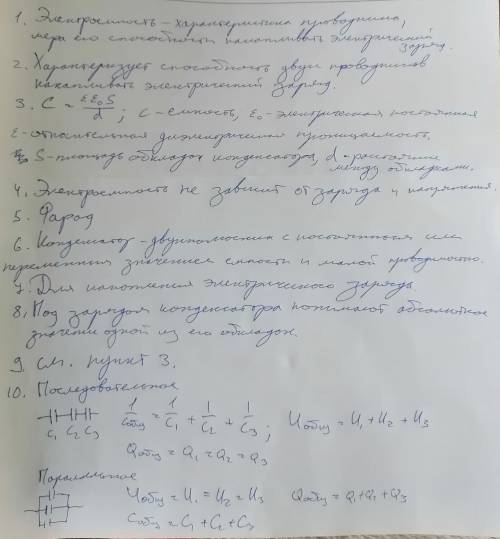 1. Электроемкость - характеристика проводника,
мера его способности накапливать электрический
заряд.
2. Характеризует способность двух проводников
накапливать электрический заряд.
3. C = εε₀S/d; C - емкость, ε₀ - электрическая постоянная
ε - относительная диэлектрическая проницаемость.
S - площадь обкладок конденсатора, d - расстояние
между обкладками.
4. Электроемкость не зависит от заряда и напряжения.
5. Фарад
6. Конденсатор - двухполюсник с постоянным или
переменным значением емкости и малой проводимостью.
7. Для накопления электрического заряда
8. Под зарядом конденсатора понимают абсолютное
значение одной из его обкладок.
9. см. пункт 3.
10. Последовательное
C₁ C₂ C₃ 1/Cобщ = 1/C₁ + 1/C₂ + 1/C₃; Uобщ = U₁ + U₂ + U₃
Qобщ = Q₁ = Q₂ = Q₃
Параллельное
Uобщ = U₁ = U₂ = U₃ Qобщ = Q₁ + Q₂ + Q₃
Cобщ = C₁ + C₂ + C₃